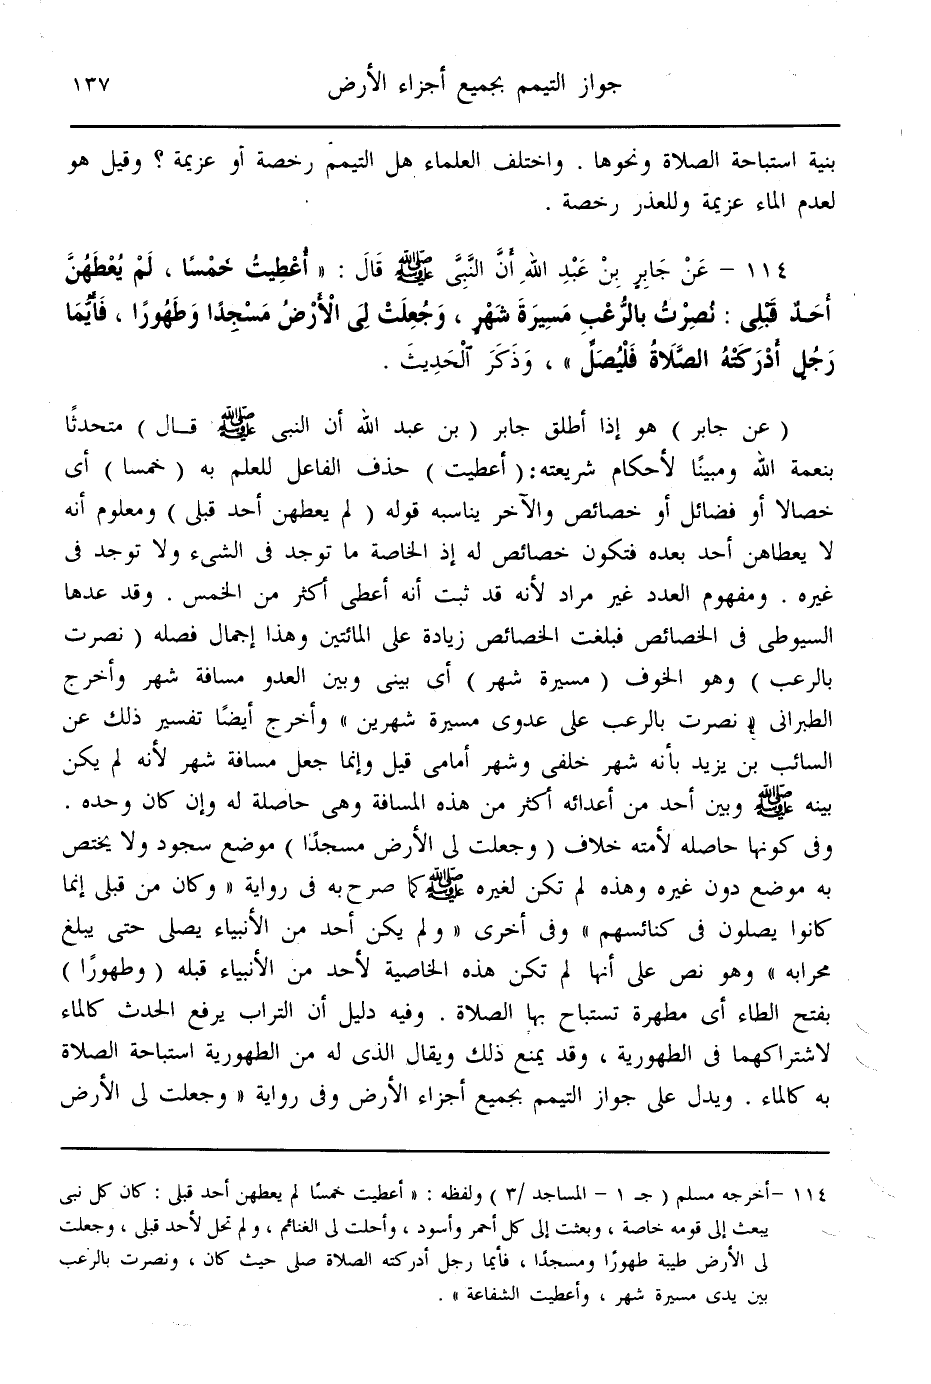 جواز التيمم بجميع أجزاء الأرض ١٣٧
بنية استباحة الصلاة ونحوها . واختلف العلماء هل التيمم رخصة أو عزيمة ؟ وقيل هو
لعدم الماء عزيمة وللعذر رخصة .
١١٤ – عَنْ جَابِرِ بِنْ عَبْدِ اللهِ أَنَّ النَّبِىَّ ﷺ قَالَ : « أُعْطِيتُ خَمْسًا ، لَمْ يُعْطَهُنَّ
أَحَدٌ قَبْلِى : نُصِرْتُ بالرُّعْبِ مَسِيرَةَ شَهْرٍ ، وَجُعِلَتْ لِىَ الْأَرْضُ مَسْجِدًا وَطَهُورًا ، فَأَيُّمَا
رَجُلٍ أَدْرَكَتْهُ الصَّلَاةُ فَلْيُصَلِّ » ، وَذَكَرَ الْحَدِيثَ .
( عن جابر ) هو إذا أطلق جابر ( بن عبد الله أن النبى ﷺ قــال ) متحدثًا
بنعمة الله ومبينًا لأحكام شريعته: ( أعطيت ) حذف الفاعل للعلم به ( خمسا ) أى
خصالا أو فضائل أو خصائص والآخر يناسبه قوله ( لم يعطهن أحد قبلى ) ومعلوم أنه
لا يعطاهن أحد بعده فتكون خصائص له إذ الخاصة ما توجد فى الشىء ولا توجد فى
غيره . ومفهوم العدد غير مراد لأنه قد ثبت أنه أعطى أكثر من الخمس . وقد عدها
السيوطى فى الخصائص فبلغت الخصائص زيادة على المائتين وهذا إجمال فصله ( نصرت
بالرعب ) وهو الخوف ( مسيرة شهر ) أى بينى وبين العدو مسافة شهر وأخرج
الطبرانى « نصرت بالرعب على عدوى مسيرة شهرين » وأخرج أيضًا تفسير ذلك عن
السائب بن يزيد بأنه شهر خلفى وشهر أمامى قيل وإنما جعل مسافة شهر لأنه لم يكن
بينه ﷺ وبين أحد من أعدائه أكثر من هذه المسافة وهى حاصلة له وإن كان وحده .
وفى كونها حاصله لأمته خلاف ( وجعلت لى الأرض مسجدًا ) موضع سجود ولا يختص
به موضع دون غيره وهذه لم تكن لغيره ﷺ كما صرح به فى رواية « وكان من قبلى إنما
كانوا يصلون فى كنائسهم » وفى أخرى « ولم يكن أحد من الأنبياء يصلى حتى يبلغ
محرابه » وهو نص على أنها لم تكن هذه الخاصية لأحد من الأنبياء قبله ( وطهورًا )
بفتح الطاء أى مطهرة تستباح بها الصلاة . وفيه دليل أن التراب يرفع الحدث كالماء
لاشتراكهما فى الطهورية ، وقد يمنع ذلك ويقال الذى له من الطهورية استباحة الصلاة
به كالماء . ويدل على جواز التيمم بجميع أجزاء الأرض وفى رواية « وجعلت لى الأرض
١١٤ -أخرجه مسلم ( جـ ١ – المساجد /٣ ) ولفظه : « أعطيت خمسًا لم يعطهن أحد قبلى : كان كل نبى
يبعث إلى قومه خاصة ، وبعثت إلى كل أحمر وأسود ، وأحلت لى الغنائم ، ولم تحل لأحد قبلى ، وجعلت
لى الأرض طيبة طهورًا ومسجدًا ، فأيما رجل أدركته الصلاة صلى حيث كان ، ونصرت بالرعب
بين يدى مسيرة شهر ، وأعطيت الشفاعة » .